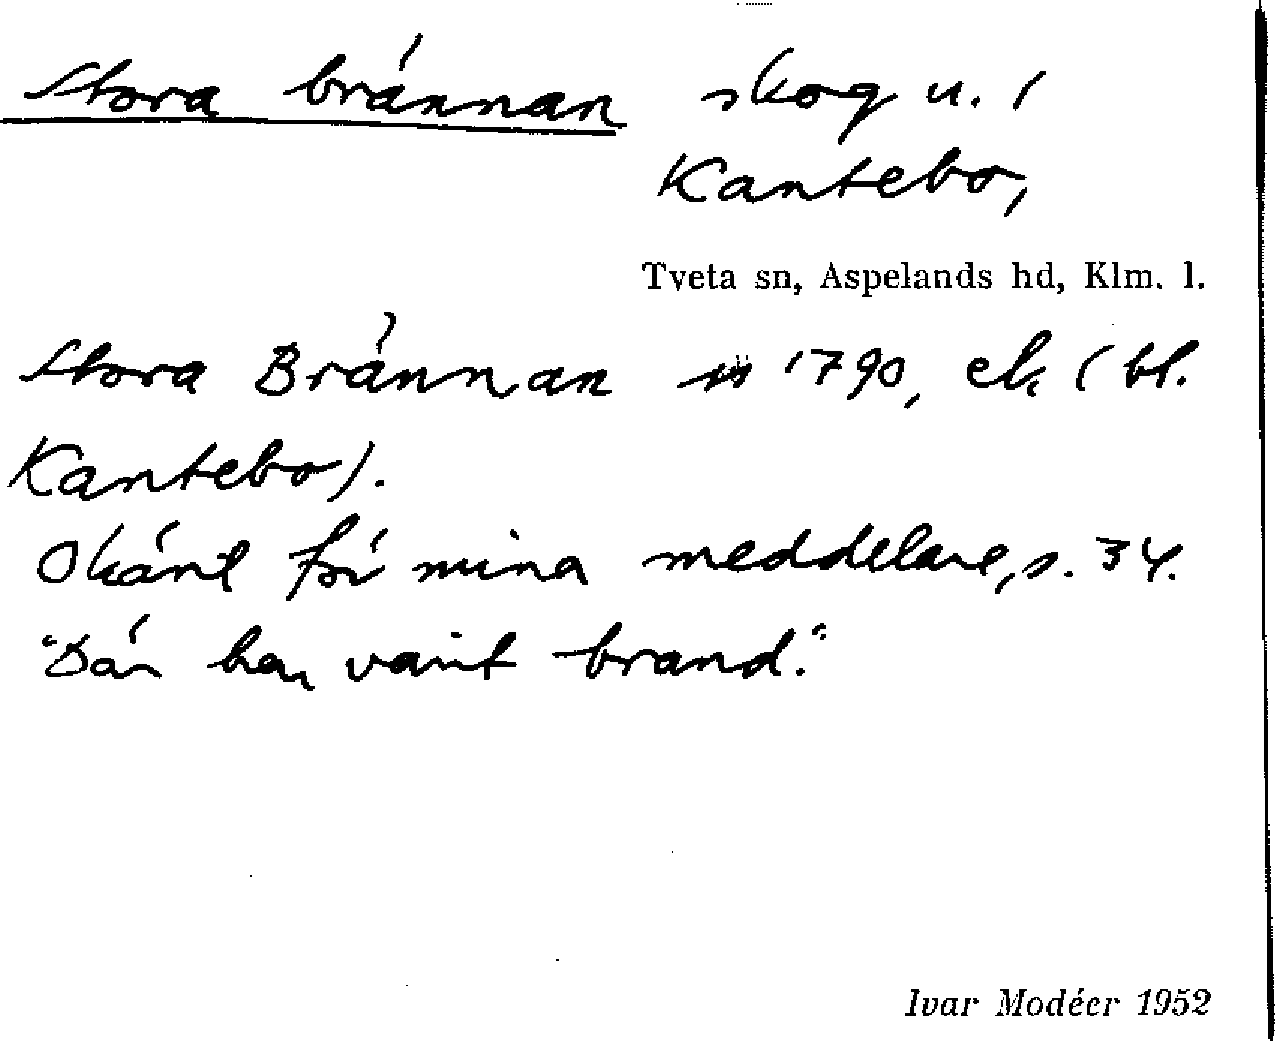 Stora brännan skog u. i
Kantebo,
Tveta sn, Aspelands hd, Klm. l.
Stora Brännan 1790, ek (bl.
Kantebo).
Okänt för mina meddelare, s. 34.
"Där har varit brand."
Ivar Modéer 1952